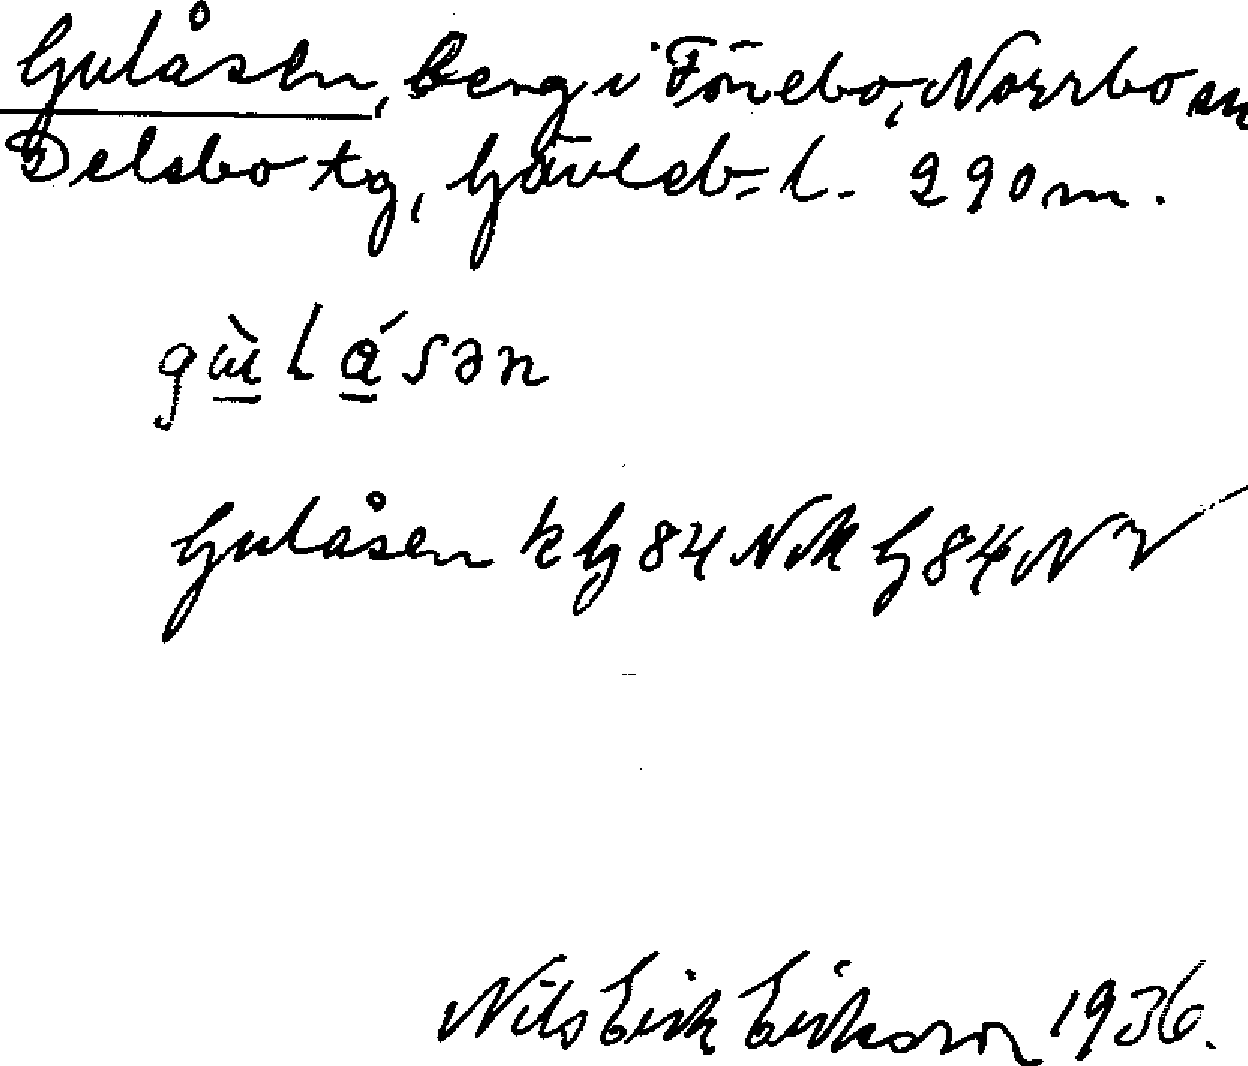 Gulåsen, berg i Fönebo, Norrbo sn
Delsbo tg, Gävleb. l. 290 m.
gù̠lá̠sən
Gulåsen k G 84 NM G 84 NV
Nils Erik Eriksson 1936.